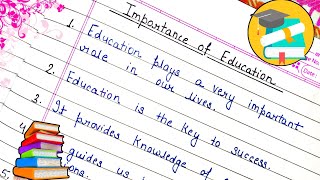 Importance of Education
1. Education plays a very important
role in our lives.
2. Education is the key to success.
3. It provides knowledge of
4. guides us
5.
Date :